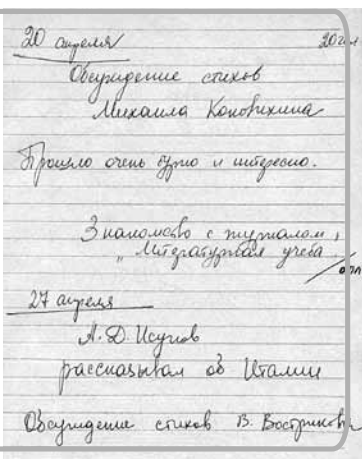 20 апреля
Обсуждение стихов
Михаила Коновихина
Прошло очень бурно и интересно.
Знакомство с журналом
„Литературная учеба
27 апреля
А. Д. Исупов
рассказывал об Италии
Обсуждение стихов В.